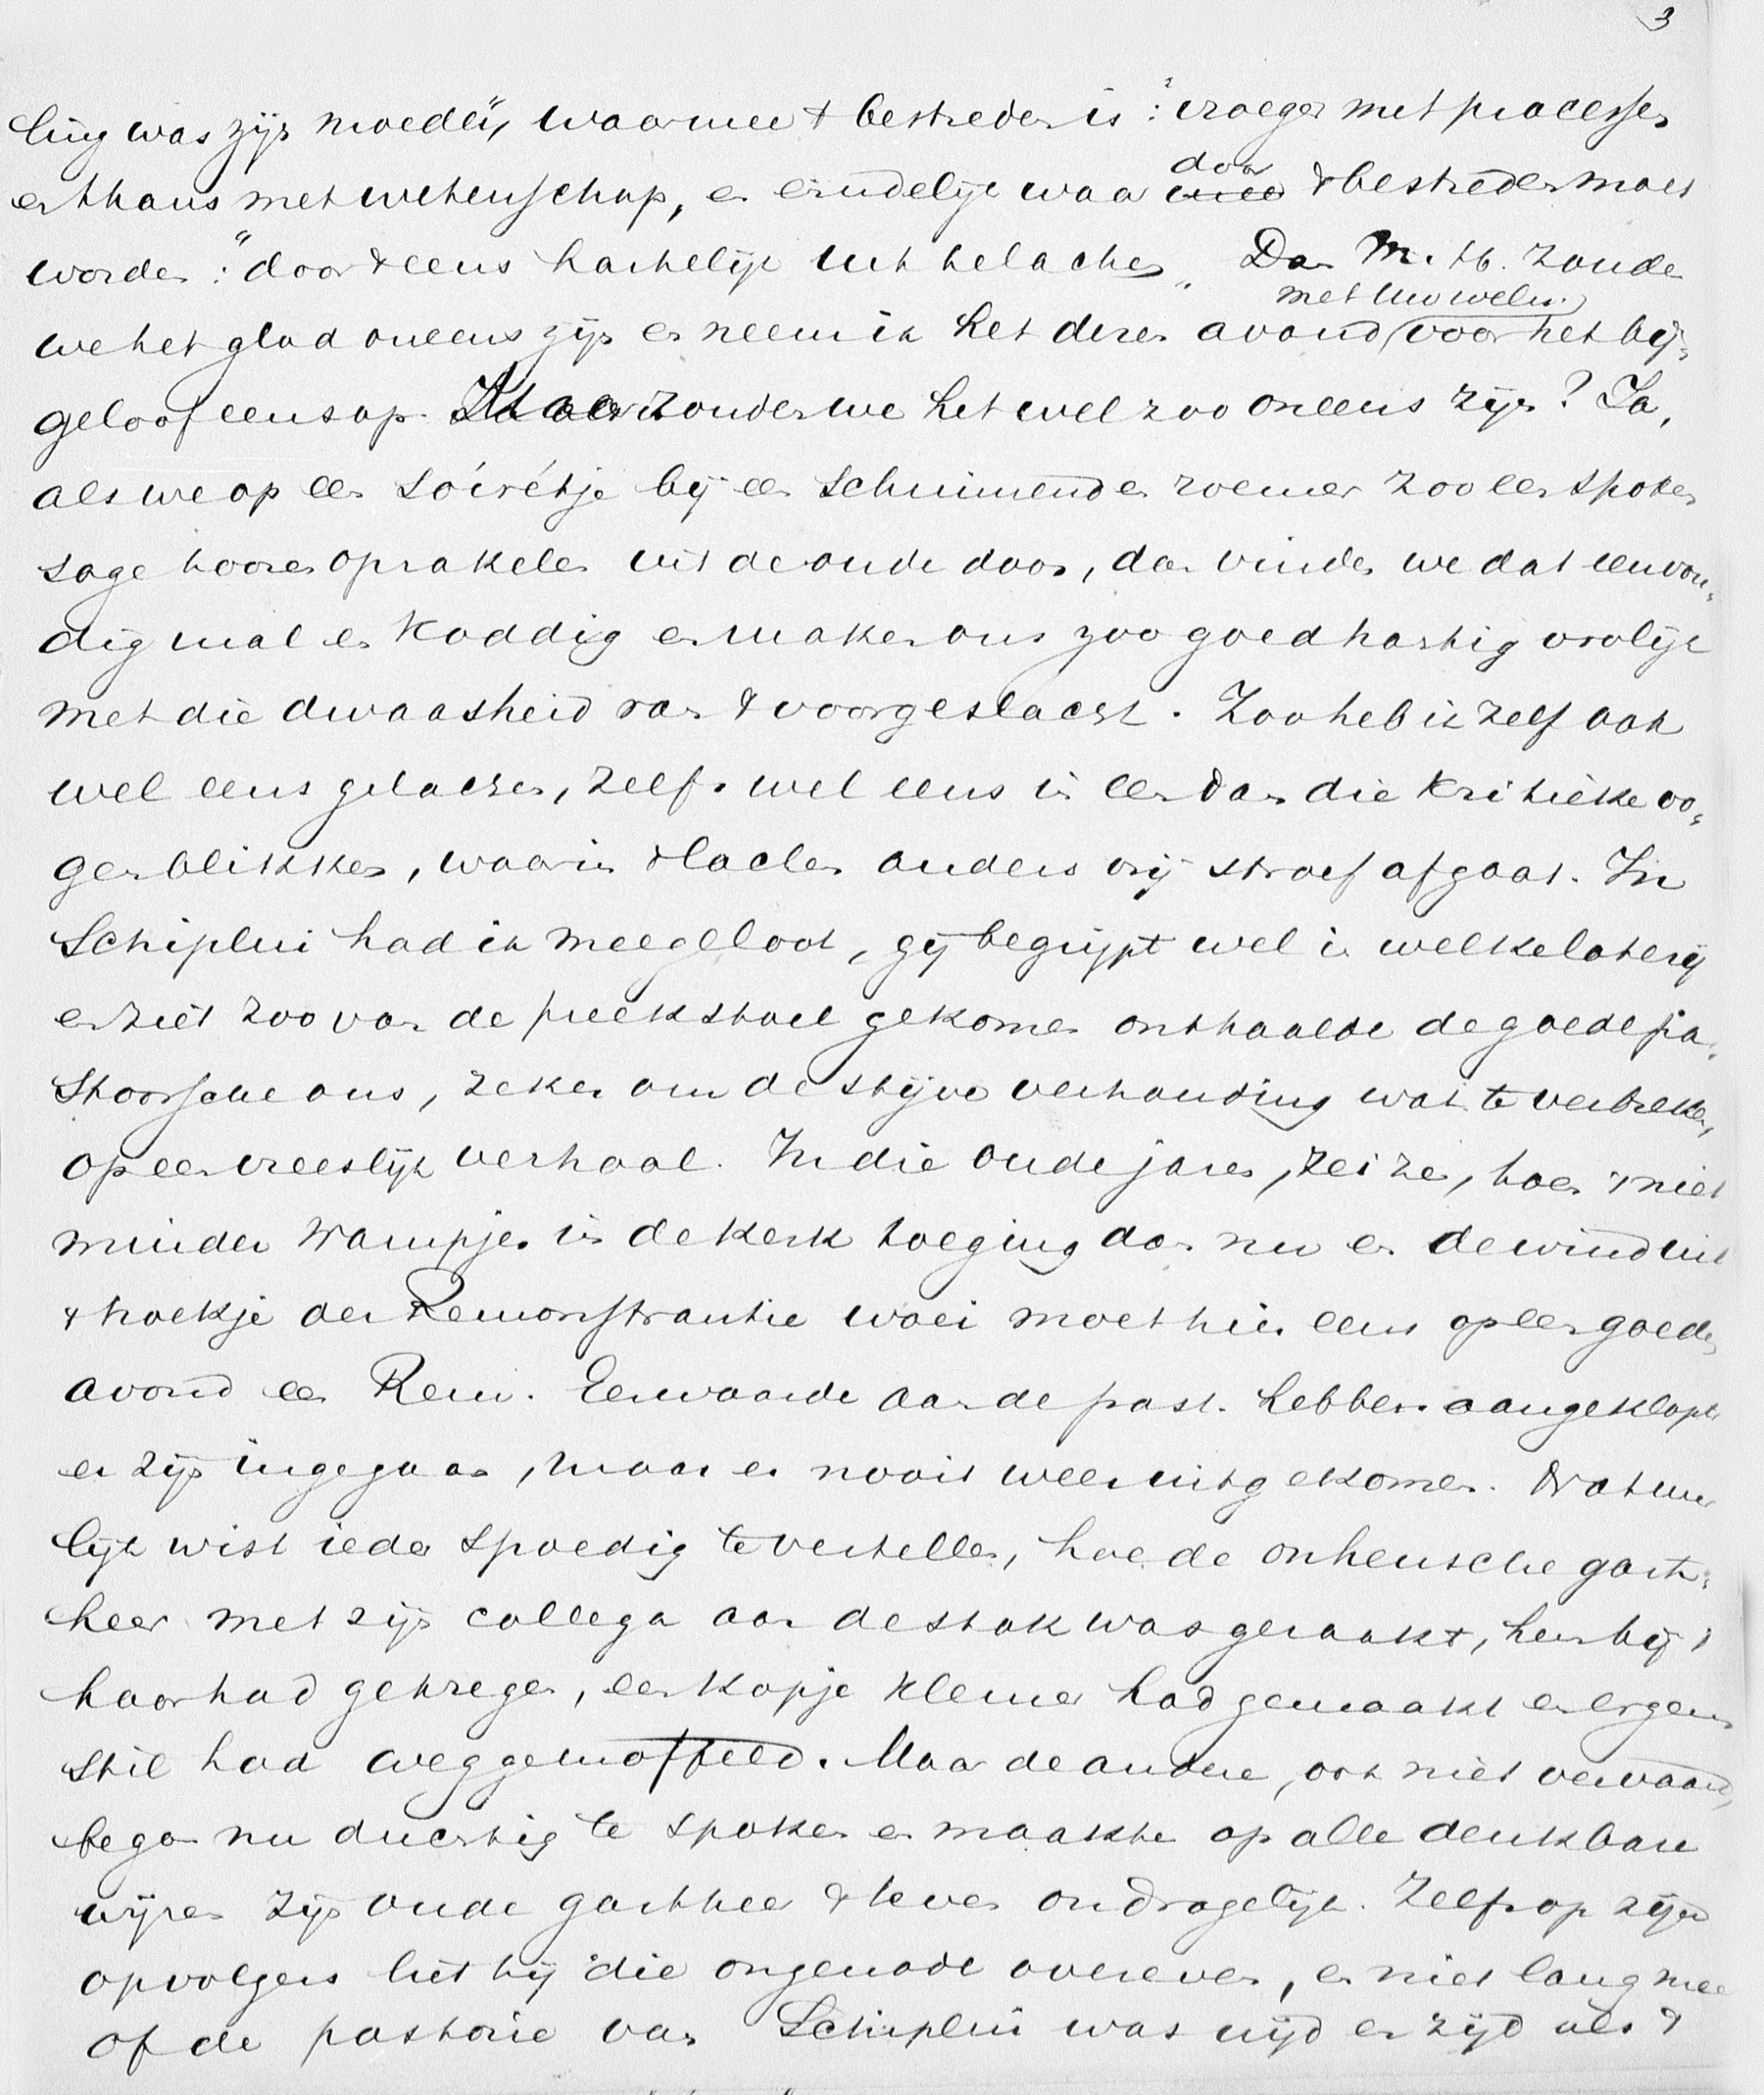 3
ling was zijn moeder", waarmee 't bestreden is: "vroeger met processen
en thans met wetenschap, en eindelijk waar door
mee 't bestreden moet
worden: "door 't eens hartelijk uit te lachen". Dan M. H. zouden
we het glad oneens zijn en neem ik het dezen avond met uw weln. voor het bij=
geloof eens op. Maar zouden we het wel zoo oneens zijn? Ja,
als we op een soirétje bij een schuimenden roemer zoo een spoken
sage hooren oprakelen uit de oude doos, dan vinden we dat eenvou=
dig mal en koddig en maken ons zoo goedhartig vrolijk
met die dwaasheid van 't voorgeslacht. Zoo heb ik zelf ook
wel eens gelachen, zelfs wel eens in een van die kritieke oo=
genblikken, waarin 't lachen anders vrij stroef afgaat. In
Schiplui had ik meegeloot, gij begrijpt wel in welke loterij
en ziet zoo van de preekstoel gekomen onthaalde de goede pa=
stoorsche ons, zeker om de stijve verhouding wat te verbreken,
op een vreeslijk verhaal. In die oude jaren, zei ze, toen 't niet
minder Wampjes in de kerk toeging dan nu en de wind uit
't hoekje der Remonstrantie woei moet hier eens op een goeden
avond een Rem. Eerwaarde aan de past. hebben aangeklopt
en zijn ingegaan, maar er nooit weer uitgekomen. Natuur
lijk wist ieder spoedig te vertellen, hoe de onheusche gast=
heer met zijn collega aan de stok was geraakt, hem bij 't
haar had gekregen, een kopje kleiner had gemaakt en ergens
stil had weggemoffeld. Maar de andere, ook niet vervaard,
begon nu duchtig te spoken en maakte op alle denkbare
wijzen zijn ouden gastheer 't leven ondragelijk. Zelfs op zijn
opvolgers liet hij die ongenade overerven, en niet lang meer
of de pastorie van Schiplui was wijd en zijd als 't